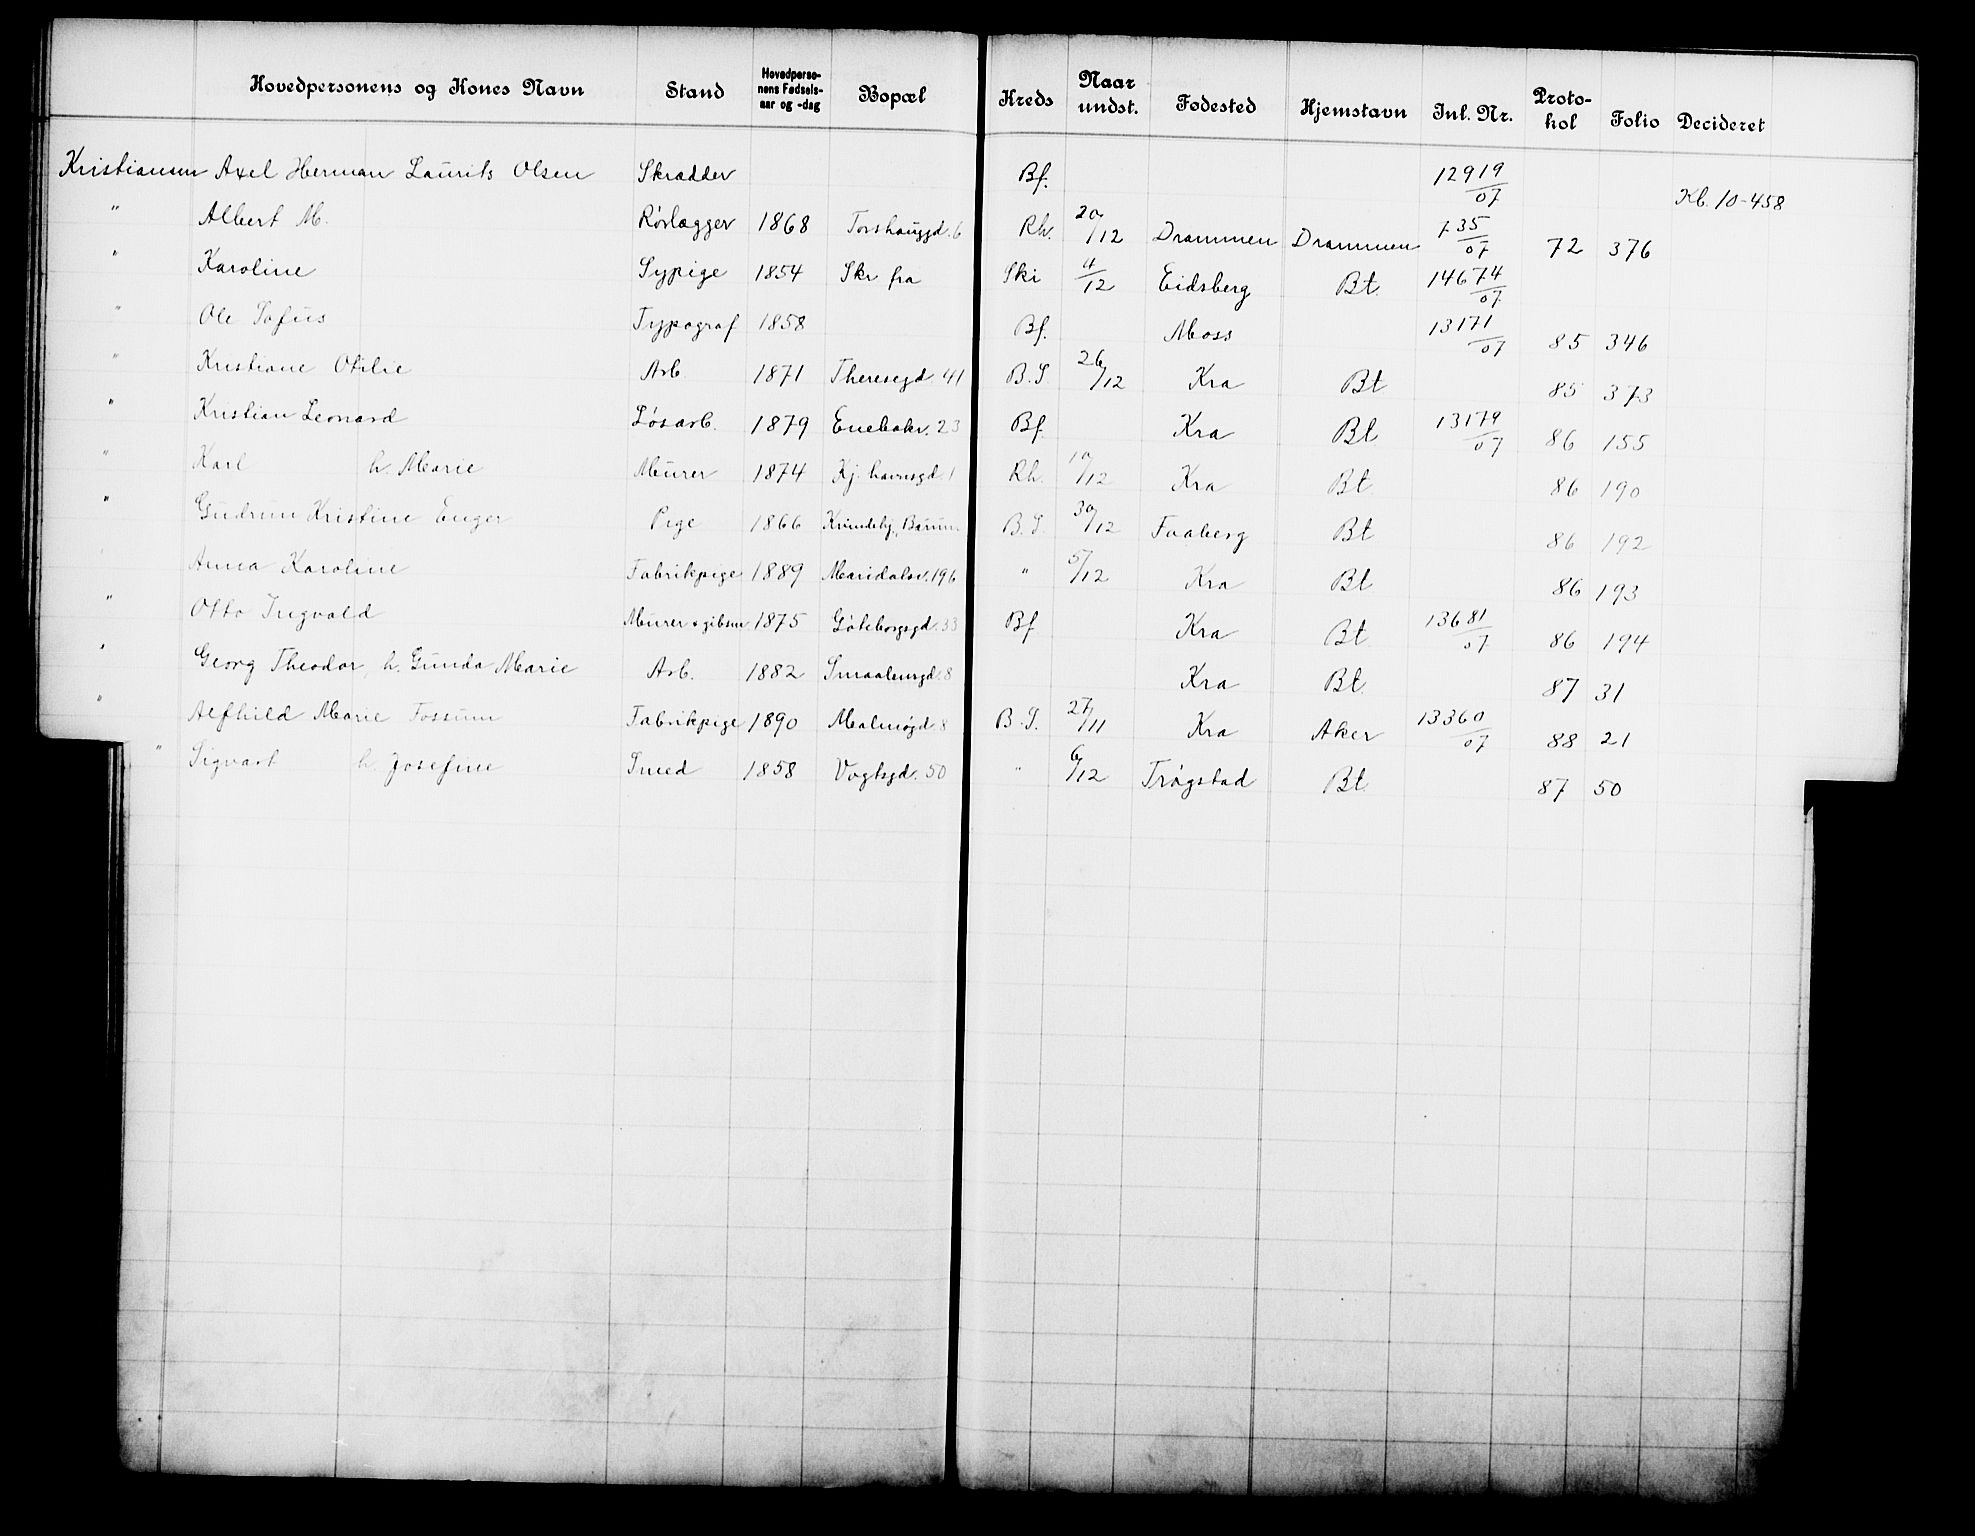 Hovedpersonens og Kones Navn Stand Hovedperso-nens Fødsels-aar og -dag Bopæl Kreds Naar undst. Fødested Hjemstavn Inl. Nr. Proto-kol Folio Decideret
Kristiansen Axel Herman Laurits Olsen Skrædder Bf. 12919/07 Kb. 10-458
" Albert M. Rørlægger 1868 Torshauggd. 6 Rh. 20/12 Drammen Drammen 735/07 72 376
" Karoline Sypige 1854 Skr fra Ski 4/12 Eidsberg Bt. 14674/07
" Ole Sofus Typograf 1858 Bf. Moss 13171/07 85 346
" Kristiane Otilie Arb. 1871 Theresegd. 41 B.S 26/12 Kra Bt 85 373
" Kristian Leonard Løsarb. 1879 Enebakv. 23 Bf. Kra Bt 13179/07 86 155
" Karl h. Marie Murer 1874 Kj.havnsgd. 1 Rh. 10/12 Kra Bt 86 190
" Gudrun Kristine Enger Pige 1866 Bærum B.S. 30/12 Faaberg Bt 86 192
Anna Karoline Fabrikpige 1889 Maridalsv. 196 " 5/12 Kra Bt 86 193
" Otto Ingvald Murer & gibsm 1875 Göteborgsgd. 33 Bf Kra Bt 13681/07 86 194
" Georg Theodor, h. Gunda Marie Arb. 1882 Smaalensgd. 8 Kra Bt. 87 31
" Alfhild Marie Fossum Fabrikpige 1890 Malmøgd 8 B.S. 27/11 Kra Aker 13360/07 88 21
" Sigvart h. Josefine Smed 1858 Vogtsgd. 50 " 6/12 Trøgstad Bt. 87 50